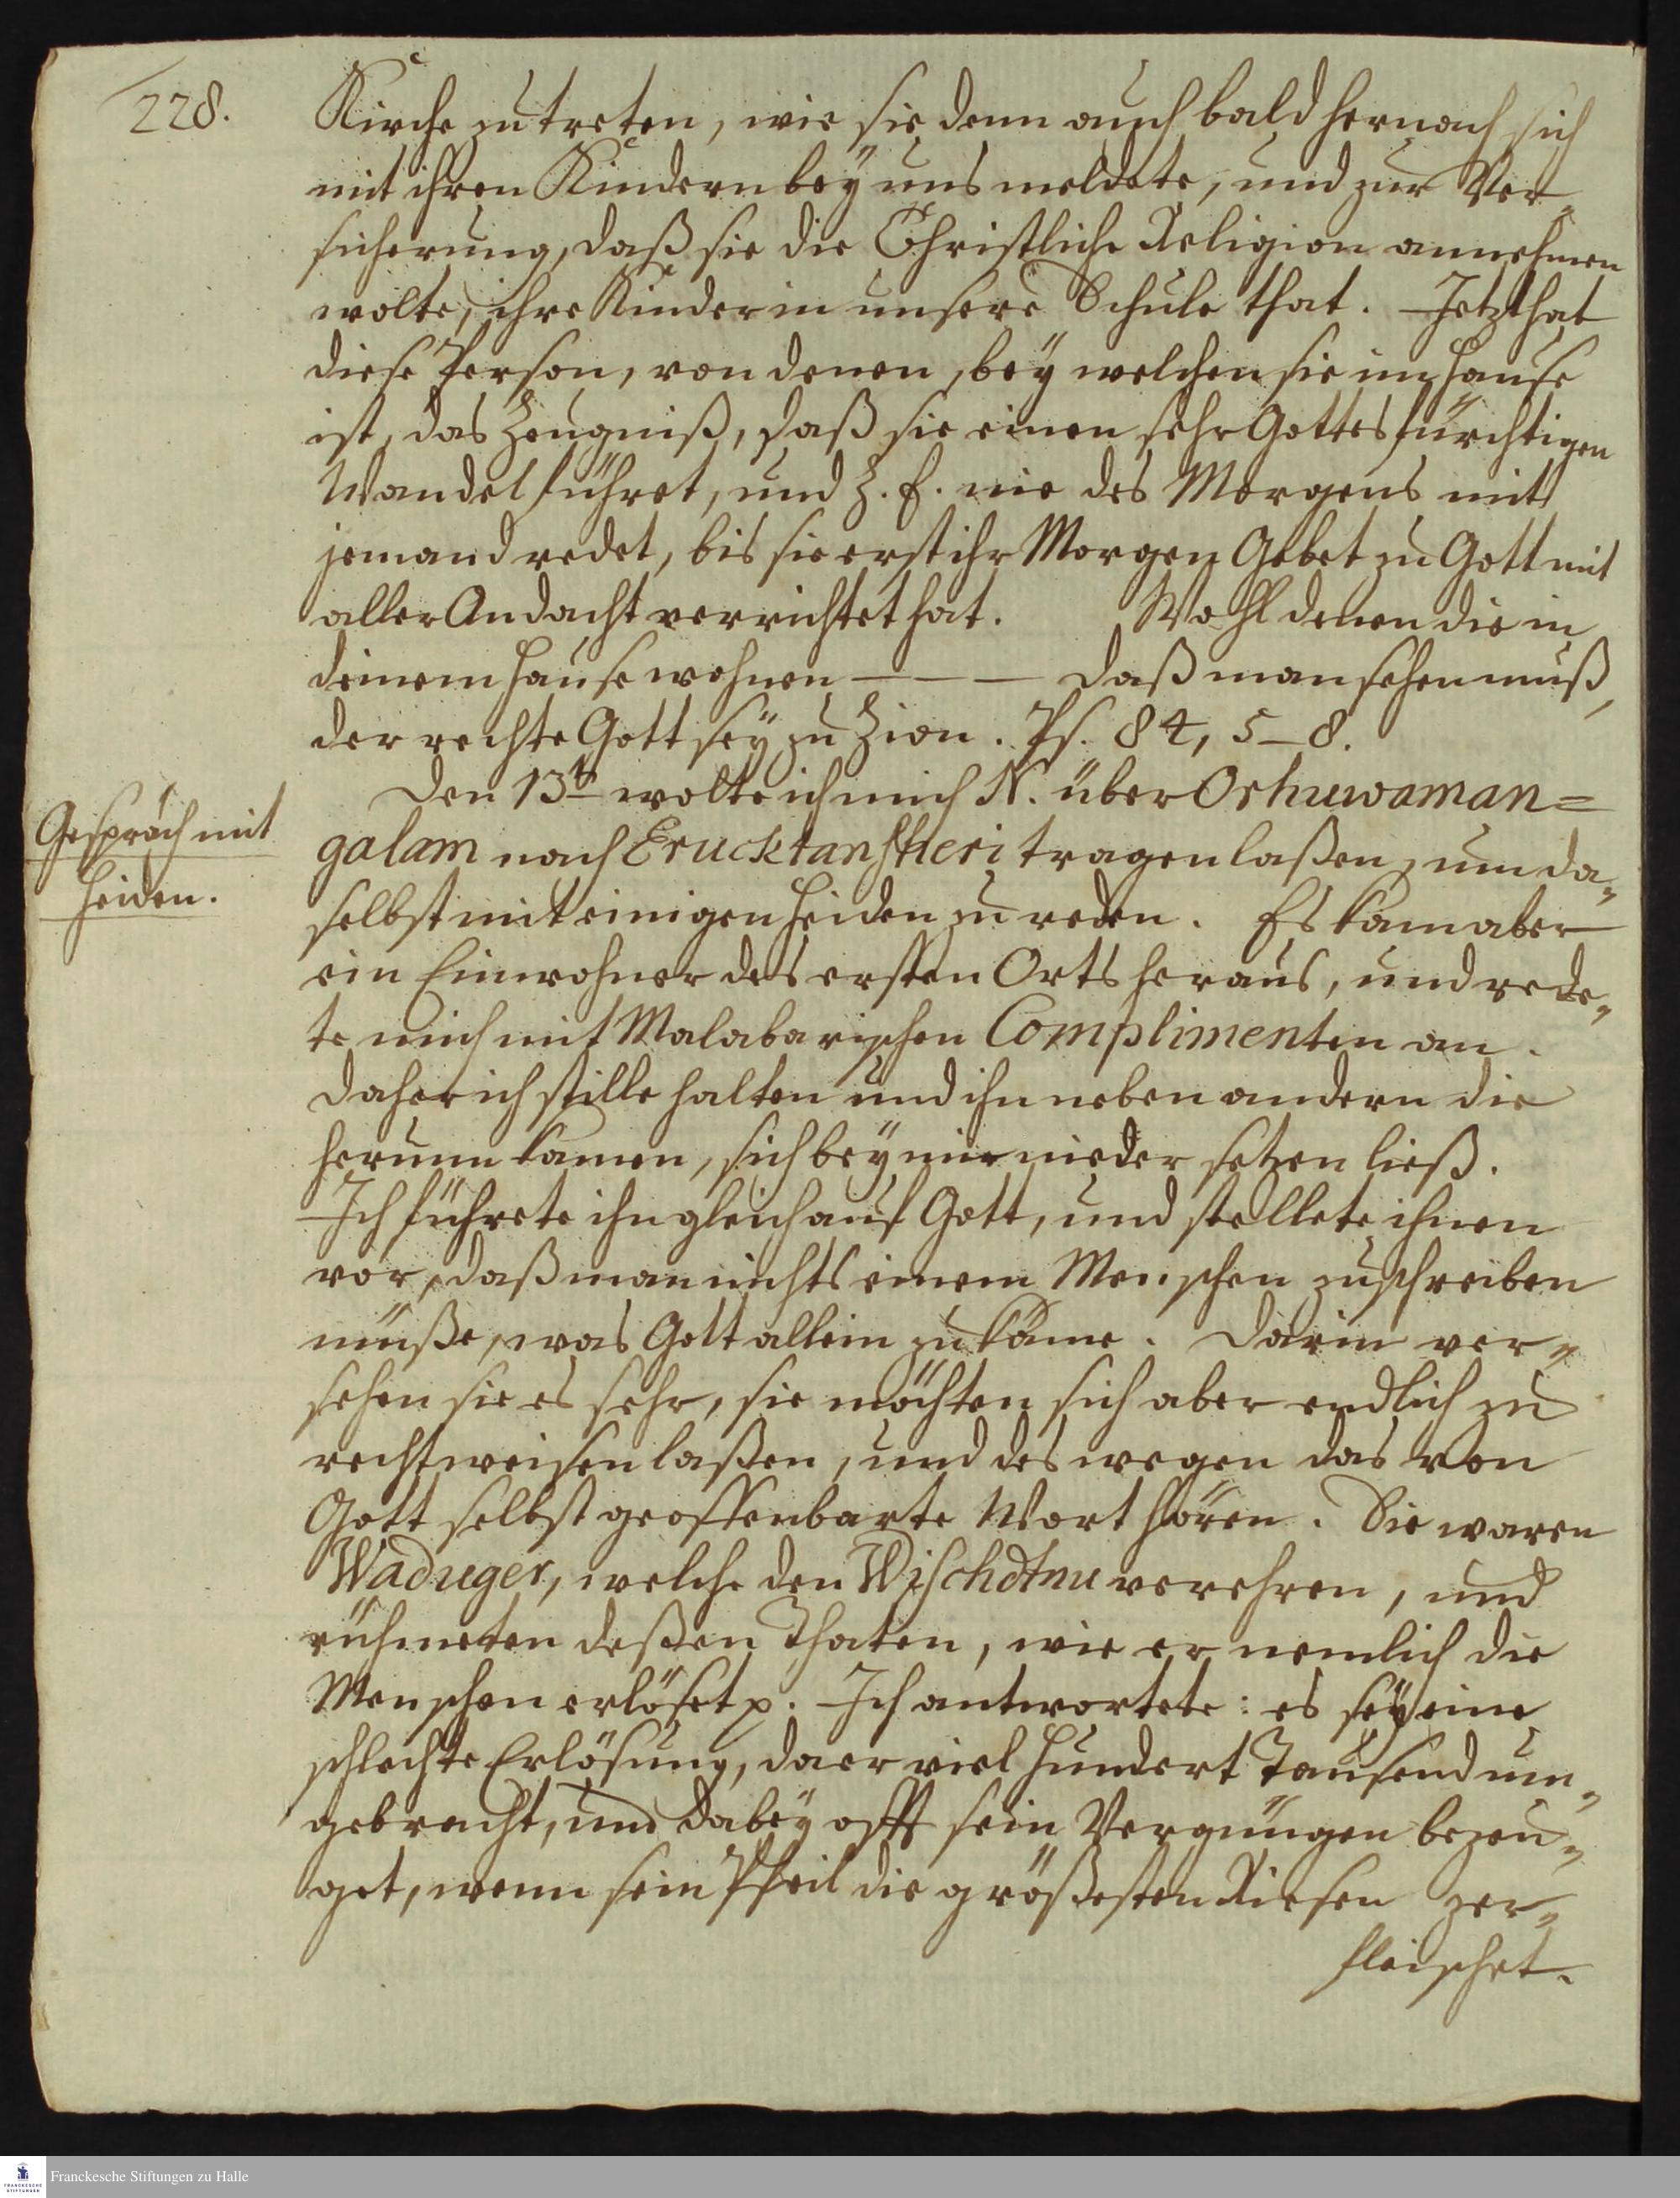 228.
Kirche zu treten, wie sie denn auch bald hernach sich
mit ihren Kindern bey uns meldete, und zur Ver„
sicherung, daß sie die Christliche Religion annehmen
wolte, ihre Kinder in unsere Schule that. Jetzt hat
diese Person, von denen, bey welchen sie im Hause
ist, das Zeugniß, daß sie einen sehr Gottesfürchtigen
Wandel führet, und Z. E. nie des Morgens mit
jemand redet, bis sie erst ihr Morgen Gebet zu Gott mit
aller Andacht verrichtet hat. Wohl denen die in
deinem Hause wohnen — — — daß man sehen muß,
der rechte Gott sey zu Zion. Ps. 84, 5–8.
Gespräch mit
Heiden.
Den 13t wolte ich mich N. über Orhuwaman=
galam nach Erucktanscheri tragen laßen, um da„
selbst mit einigen Heiden zu reden. Es kam aber
ein Einwohner des ersten Orts heraus, und rede„
te mich mit Malabarischen Complimenten an.
Daher ich stille halten und ihn neben andern die
herum kamen, sich bey mir nieder setzen ließ.
Ich führete ihn gleich auf Gott, und stellete ihnen
vor, daß man nichts einem Menschen zuschreiben
müße, was Gott allein zukäme. Darin ver„
sehen sie es sehr, sie möchten sich aber endlich zu
recht weisen laßen, und des wegen das von
Gott selbst geoffenbarte Wort hören. Sie waren
Waduger, welche den Wischdtnu verehren, und
rühmeten deßen Thaten, wie er nemlich die
Menschen erlöset p. Ich antwortete: es sey eine
schlechte Erlösung, da er viel hundert Tausend um„
gebracht, und dabey offt sein Vergnügen bezeu„
get, wenn sein Pfeil die größesten Riesen zer„
fleischet.
Franckesche Stiftungen zu Halle
FRANCKESCHE
STIFTUNGEN